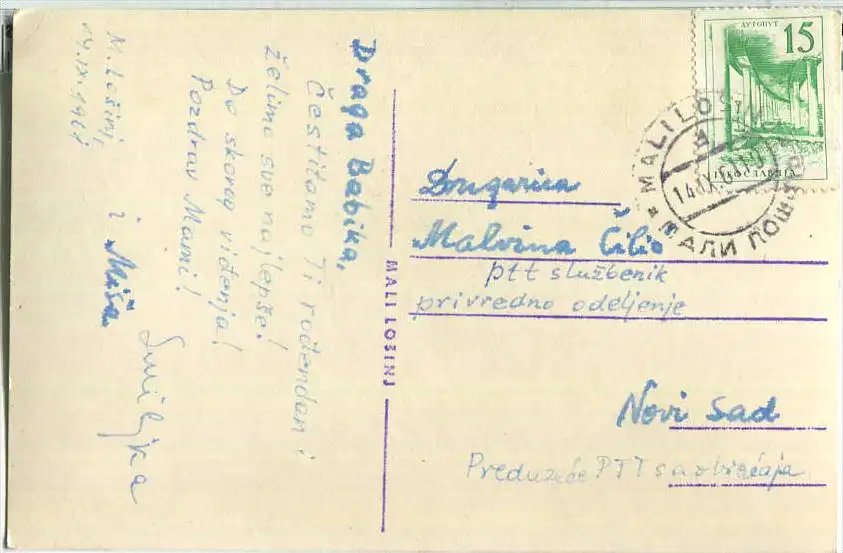 M. Lošinj,
14.IX.1961
Draga Babika,
Čestitamo Ti rođendan i
želimo sve najlepše!
Do skorog viđenja!
Pozdrav Mami!
i Miša
Smiljka
MALI LOŠINJ
15
MALI LOŠINJ
14.IX.61
МАЛИ ЛОШИЊ
Drugarica
Malvina Čilić
ptt službenik
privredno odeljenje
Novi Sad
Preduzeće PTT saobraćaja